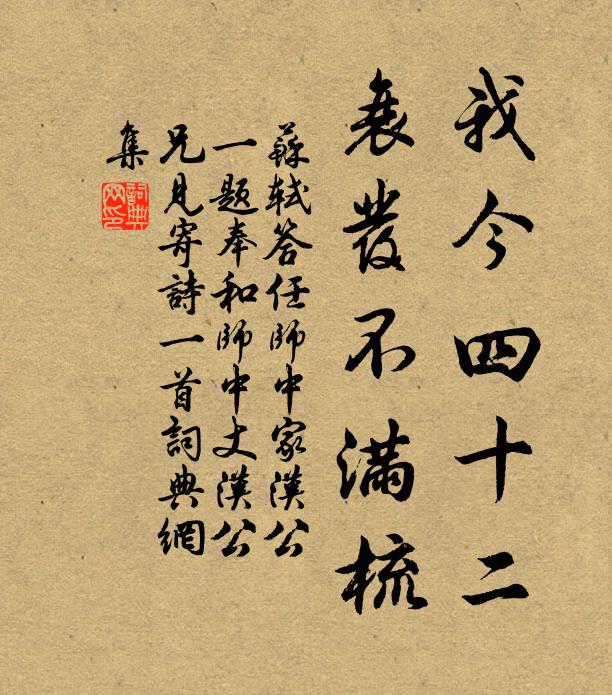 我今四十二
衰发不滿梳
蘇軾答任師中家漢公
一題奉和師中丈漢公
兄見寄詩一首詞典網
集
詞典
网印